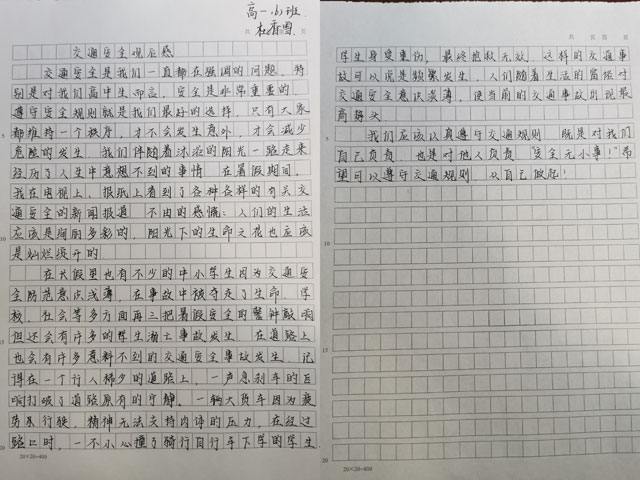 高一(6)班
杜香雪
共 页 第 页
交通安全观后感
交通安全是我们一直都在强调的问题,特
别是对我们高中生而言,安全是非常重要的.
遵守安全规则就是我们最好的选择,只有大家
都维持一个秩序,才不会发生意外,才会减少
危险的发生.我们伴随着沐浴的阳光一路走来
经历了人生中意想不到的事情.在暑假期间,
我在电视上、报纸上看到了各种各样的有关交
通安全的新闻报道.不由的感慨:人们的生活
应该是绚丽多彩的,阳光下的生命之花也应该
是灿烂绽开的.
在长假里也有不少的中小学生因为交通安
全防范意识浅薄,在事故中被夺走了生命.学
校、社会等多方面再三把暑假安全的警钟敲响
但还会有许多的学生溺士事故发生.在道路上
也会有许多意料不到的交通安全事故发生.记
得在一个行人稀少的道路上,一声急刹车的巨
响打破了道路原有的宁静.一辆大货车因为疲
劳行驶,精神无法支持内体的压力,在经过
路口时,一不小心撞了骑行自行车下学的学生
20×20=400
共 页 第 页
学生身受重伤,最终抢救无效.这样的交通事
故可以说是频繁发生.人们随着生活的富裕对
交通安全意识淡薄,使当前的交通事故出现最
高势头.
我们应该认真遵守交通规则.既是对我们
自己负责.也是对他人负责."安全无小事!"希
望可以遵守交通规则.从自己做起!
20×20=400